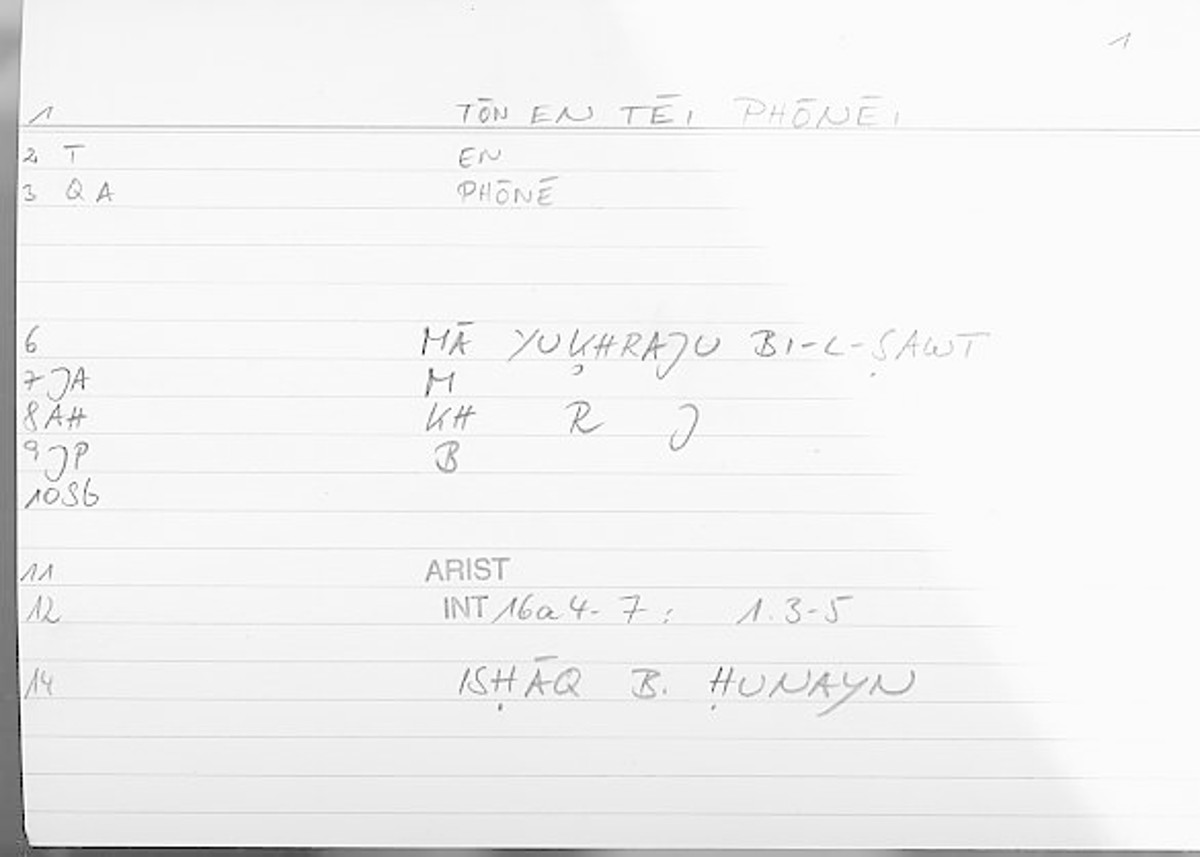 1
1 TŌN EN TĒI PHŌNĒI
2 T EN
3 QA PHŌNĒ
6 MĀ YUKHRAJU BI-L-ṢAWT
7 JA M
8 AH KH R J
9 JP B
10 Sb
11 ARIST
12 INT 16a 4-7: 1.3-5
14 ISḤĀQ B. ḤUNAYN